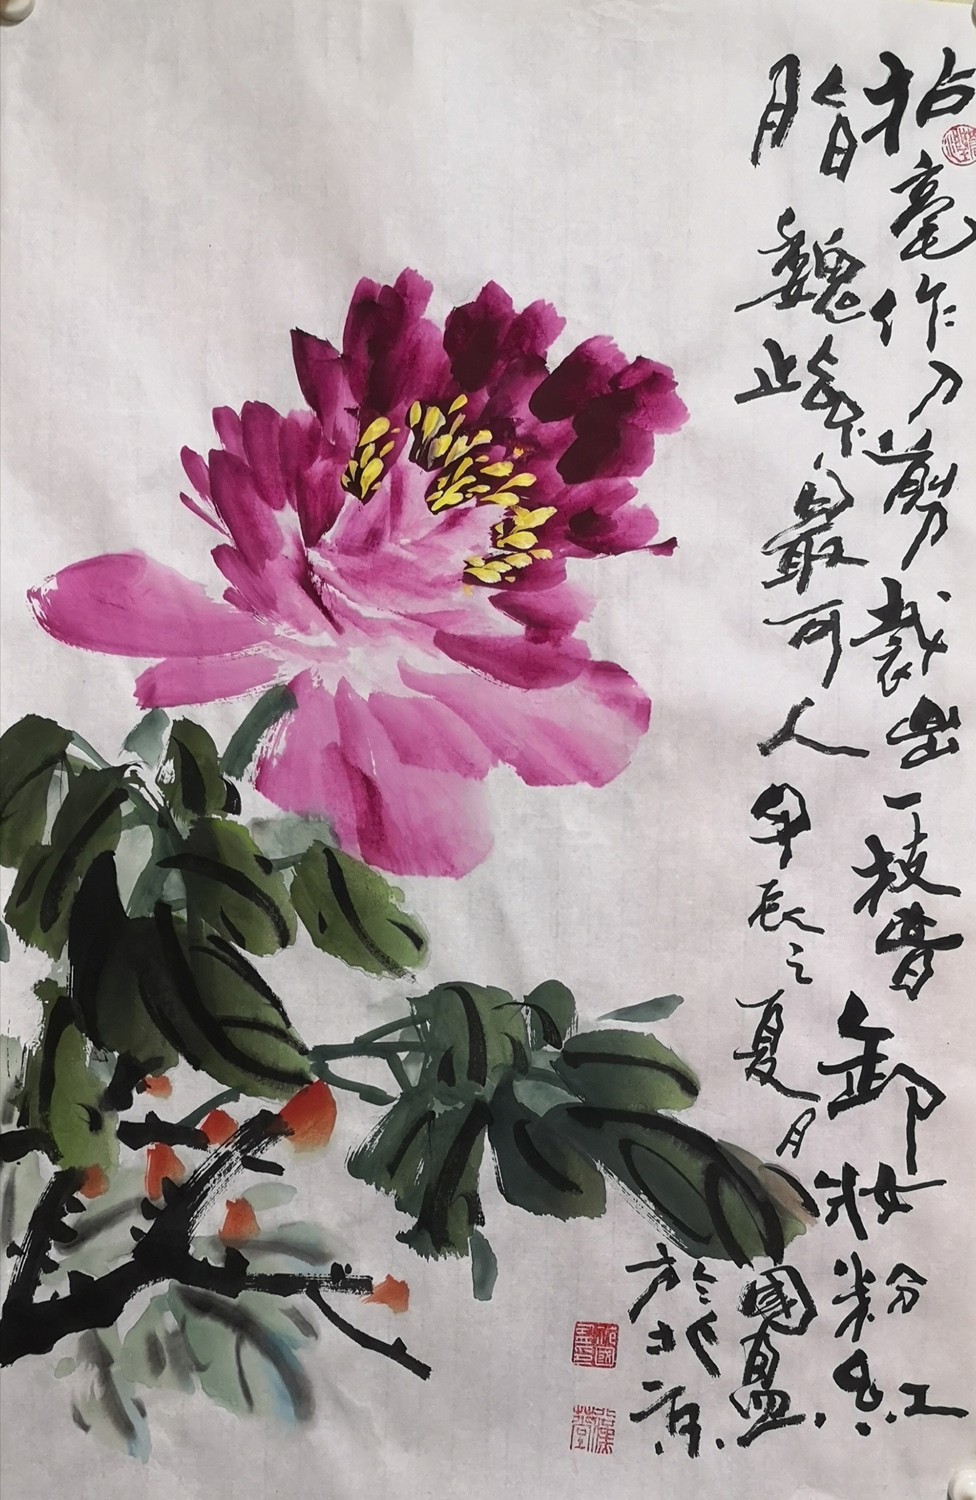 拈毫作刀剪裁出一枝昔卸妝粉红
脂魏紫最可人甲辰之夏月國盈
於北京